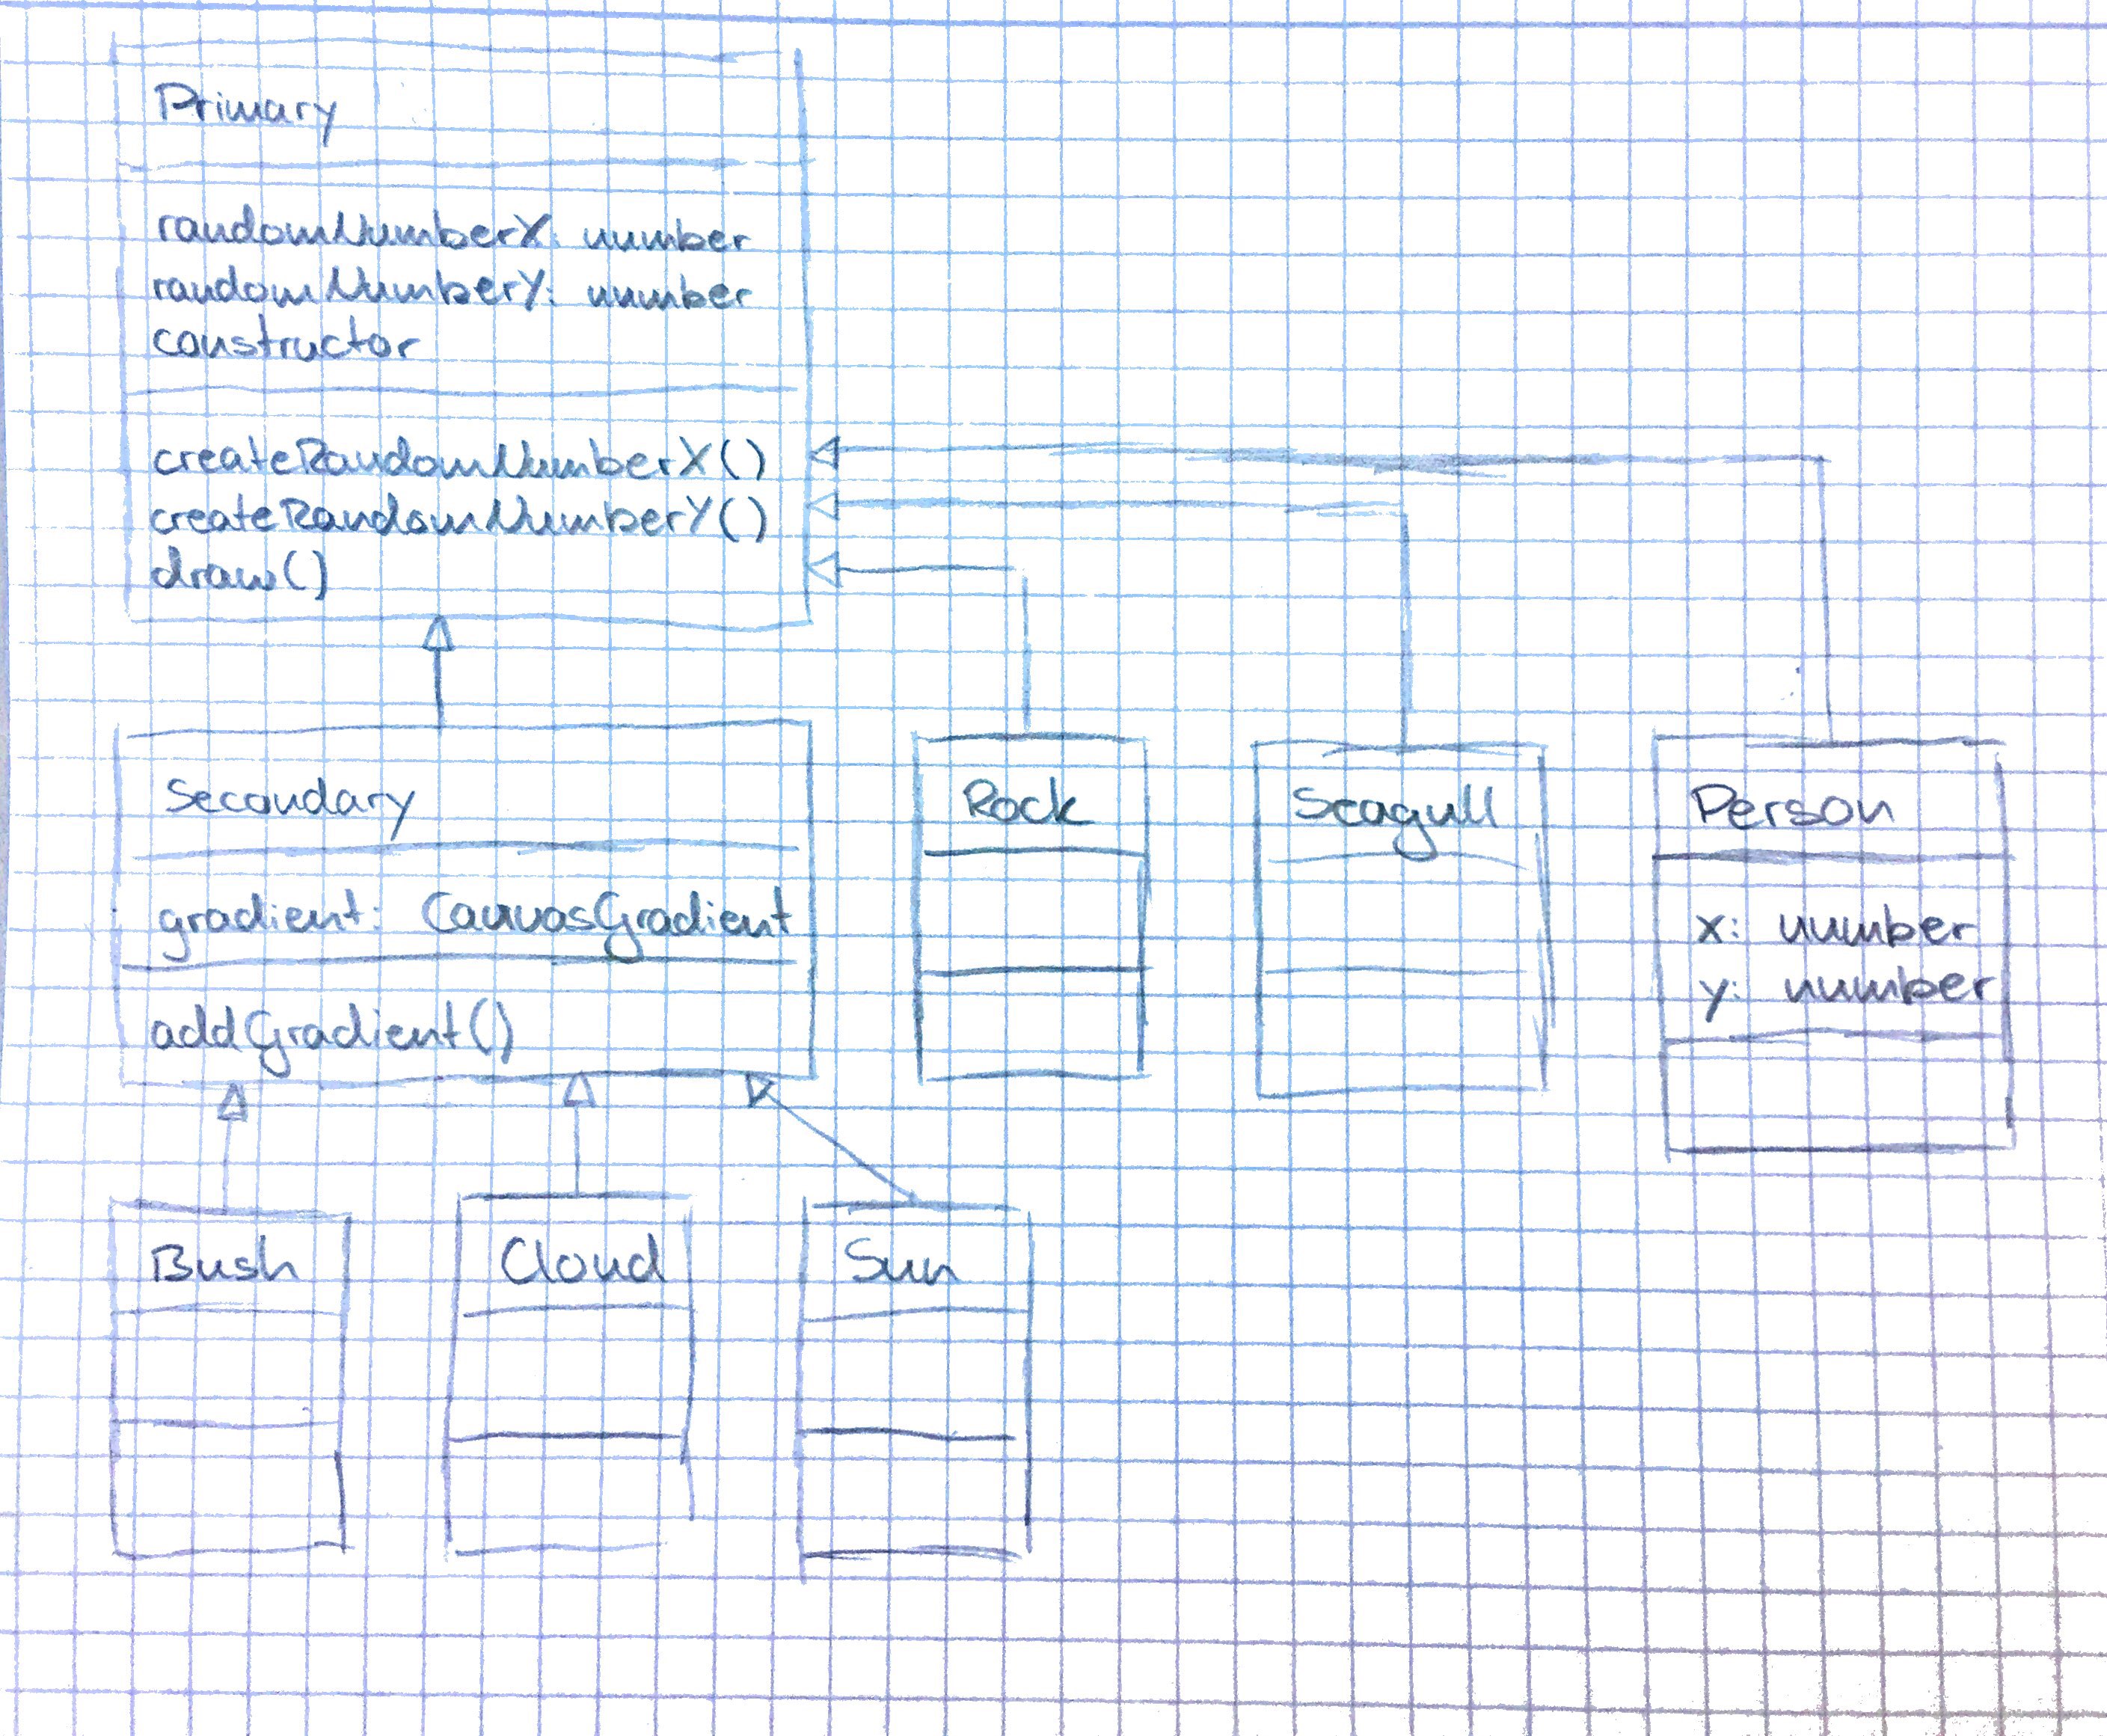 Primary
randomNumberX: number
randomNumberY: number
constructor
createRandomNumberX()
createRandomNumberY()
draw()
Secondary
gradient: CanvasGradient
addGradient()
Rock
Seagull
Person
x: number
y: number
Bush
Cloud
Sun